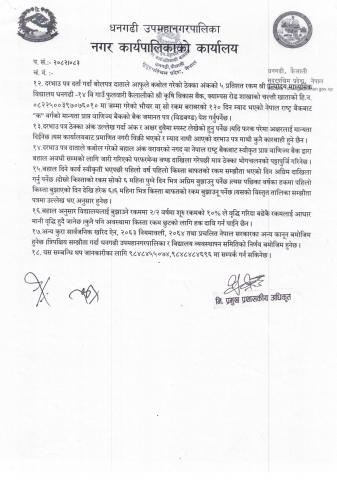 धनगढी उपमहानगरपालिका
नगर कार्यपालिकाको कार्यालय
प. सं.: २०८२/०८३
च. नं.:
धनगढी, कैलाली
सुदूरपश्चिम प्रदेश, नेपाल
१२. दरभाउ पत्र दर्ता गर्दा बोलपत्र दाताले आफूले कबोल गरेको ठेक्का अंकको ५ प्रतिशत रकम श्री माध्यमिक
विद्यालय धनगढी -१४ बि गाउँ फूलवारी कैलालीको श्री कृषि विकास बैंक, क्याम्पस रोड शाखाको चल्ती खाताको हि.नं.
मा जम्मा गरेको भौचर वा सो रकम बराबरको १२० दिन म्याद भएको नेपाल राष्ट्र बैंकबाट
"क" वर्गको मान्यता प्राप्त वाणिज्य बैंकको बैंक जमानत पत्र (विडबण्ड) पेश गर्नुपर्नेछ।
१३. दरभाउ पत्र ठेक्का अंक उल्लेख गर्दा अंक र अक्षर दुबैमा स्पष्ट लेखेको हुनु पर्नेछ त्यति फरक परेमा अक्षरलाई मान्यता
दिइनेछ त्यस कार्यालयबाट प्रमाणित नगरी बिक्री भएको र म्याद नाघी आएको दरभाउ पत्र माथी कुनै कारवाही हुने छैन।
१४. दरभाउ पत्र दाताले कबोल गरेको बहाल अंक बराबरको नगद वा नेपाल राष्ट्र बैंकबाट स्वीकृत प्राप्त वाणिज्य बैंक द्वारा
बहाल अवधी सम्मको लागि जारी गरिएको परफरमेन्स वण्ड दाखिला गरेपछी मात्र ठेक्का भोगचलनको पट्टापुर्जि गरिनेछ।
१५. बहाल दिने कार्य स्वीकृती भएपछी पहिलो वर्ष पहिलो किस्ता बापतको रकम सम्झौता भएको दिन अग्रिम दाखिला
गर्नु पर्नेछ। दोस्रो किस्ताको रकम सोको ६ महिना पुग्ने दिन भित्र अग्रिम बुझाउनु पर्नेछ। त्यस पछिका वर्षका हकमा पहिलो
किस्ता बुझाएको दिन देखि हरेक ६/६ महिना भित्र किस्ता बापतको रकम बुझाउनु पर्नेछ। त्यसको विस्तृत तालिका सम्झौता
पत्रमा उल्लेख भए अनुसार हुनेछ।
१६. बहाल अनुसार विद्यालयलाई बुझाउने रकममा २/२ वर्षमा शुरु रकमको १०% ले वृद्धि गरिदा बढेकै रकमलाई आधार
मानी वृद्धि हुदै जानेछ। कुनै पनि अवस्थामा किस्ता रकम छुट को लागि हक दावि गर्न पाईने छैन।
१७. अन्य कुरा सार्वजनिक खरिद ऐन, २०६३ नियमावली, २०६४ तथा प्रचलित नेपाल सरकारका अन्य कानून बमोजिम
हुनेछ। त्रिपक्षिय सम्झौता गर्दा धनगढी उपमहानगरपालिका र विद्यालय व्यवस्थापन समितिको निर्णय बमोजिम हुनेछ।
१८. यस सम्बन्धि थप जानकारीका लागि ९८४८४५५०७४,९८४८४८४६९६ मा सम्पर्क गर्न सकिनेछ।
नि. प्रमुख प्रशासकीय अधिकृत